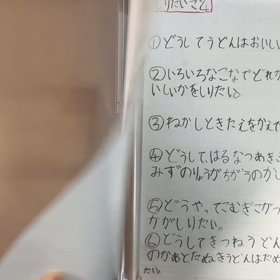 りたいこと
①どうしてうどんはおいし
②いろいろなこなでどれが
いしいかをしりたい。
③ねかしときたえをかえて
④どうして、はるなつあき
みずのりょうがちがうのか
⑤どうやってこむぎこが
かがしりたい。
⑥どうしてきつねうどん
のかあとたぬきうどんはだ
たい。